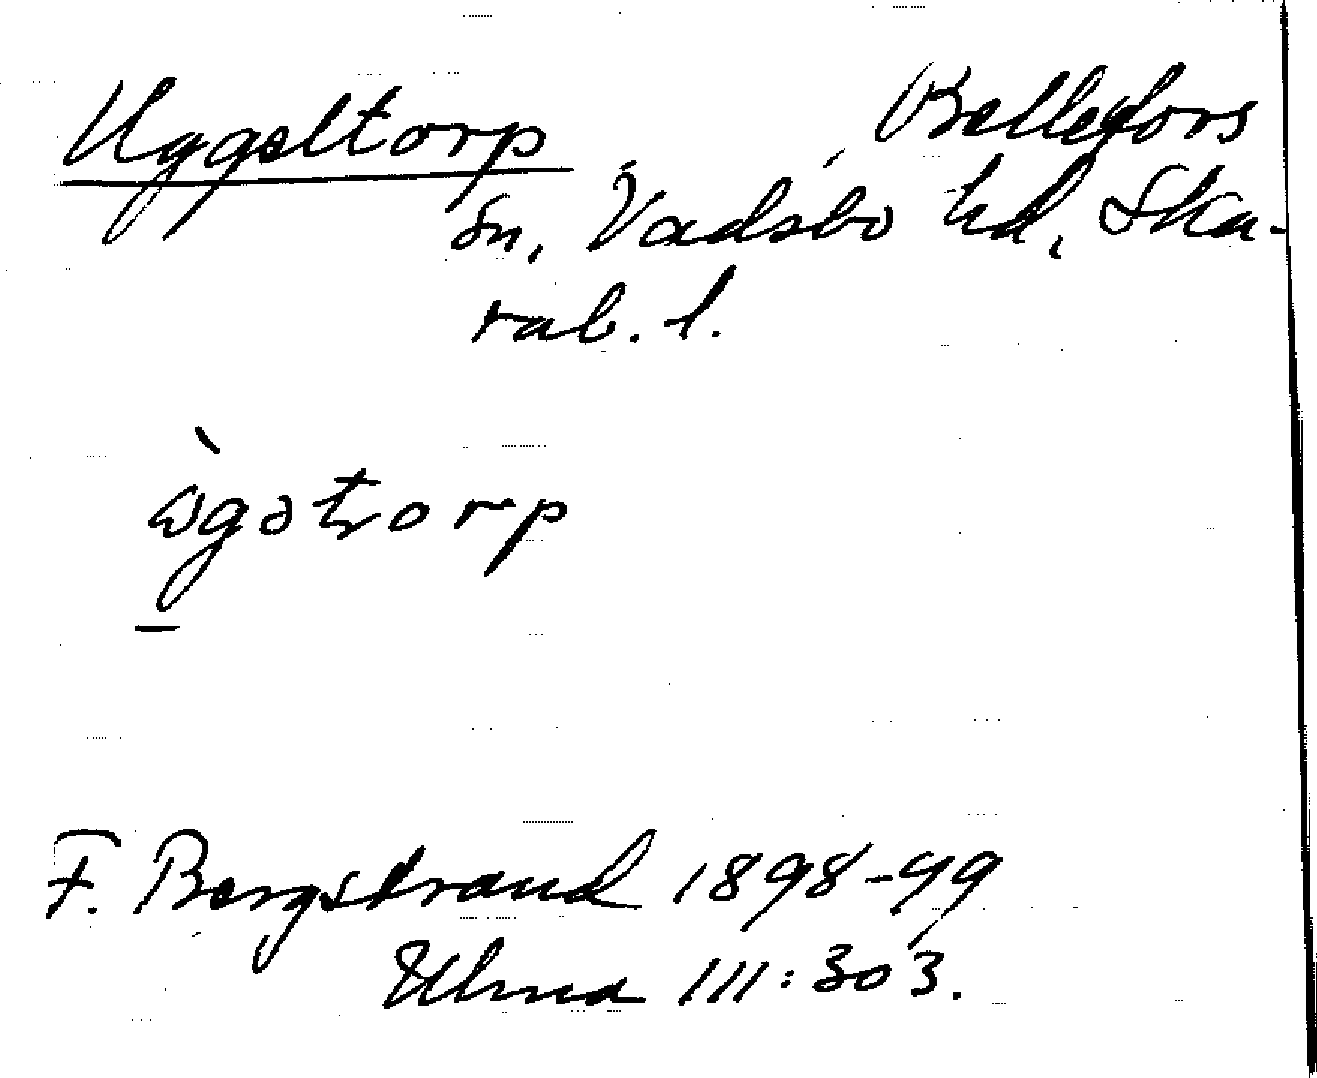 Uggeltorp Bellefors
sn, Vadsbo hd, Ska-
rab. l.
ẁgətorp
F. Bergstrand 1898-99
Ulma 111:303.